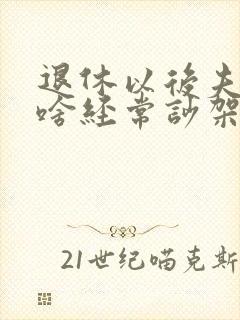 退休以後夫
啥経常訬架
21世纪喵克斯